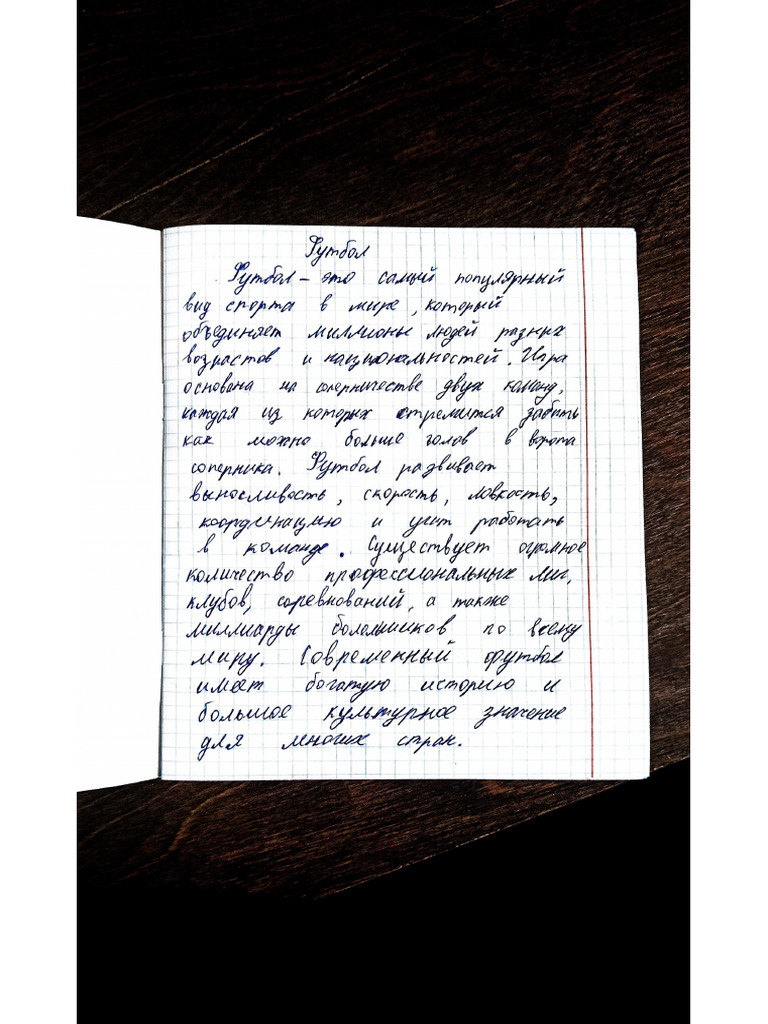 Футбол
Футбол – это самый популярный
вид спорта в мире, который
объединяет миллионы людей разных
возрастов и национальностей. Игра
основана на соперничестве двух команд,
каждая из которых стремится забить
как можно больше голов в ворота
соперника. Футбол развивает
выносливость, скорость, ловкость,
координацию и учит работать
в команде. Существует огромное
количество профессиональных лиг,
клубов, соревнований, а также
миллиарды болельщиков по всему
миру. Современный футбол
имеет богатую историю и
большое культурное значение
для многих стран.